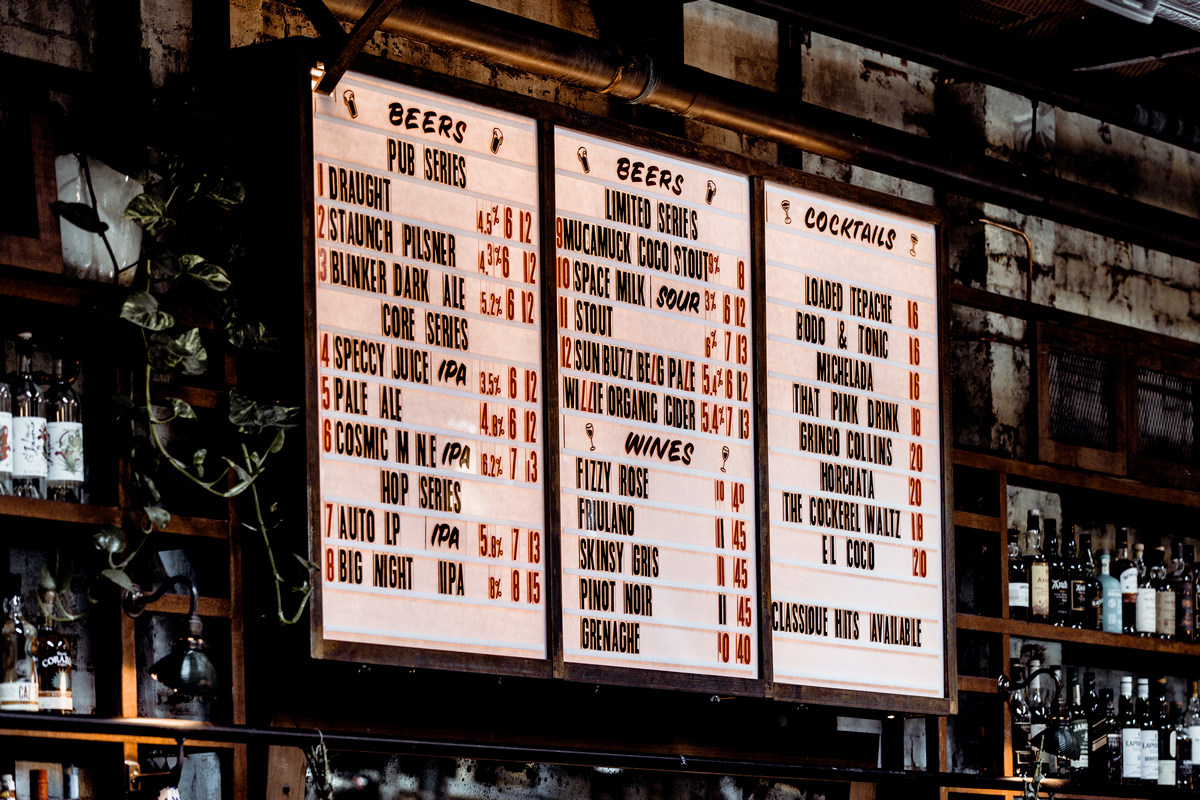 BEERS
PUB SERIES
1 DRAUGHT 4.5% 6 12
2 STAUNCH PILSNER 4.3% 6 12
3 BLINKER DARK ALE 5.2% 6 12
CORE SERIES
4 SPECCY JUICE IPA 3.5% 6 12
5 PALE ALE 4.8% 6 12
6 COSMIC M N E IPA 6.2% 7 13
HOP SERIES
7 AUTO LP IPA 5.8% 7 13
8 BIG NIGHT IIPA 8% 8 15
BEERS
LIMITED SERIES
9 MUCAMUCK COCO STOUT 9% 8
10 SPACE MILK SOUR 3% 6 12
11 STOUT 6% 7 13
12 SUN BUZZ BELG PALE 5.4% 6 12
WILLIE ORGANIC CIDER 5.4% 7 13
WINES
FIZZY ROSE 10 40
FRIULANO 11 45
SKINSY GRIS 11 45
PINOT NOIR 11 45
GRENACHE 10 40
COCKTAILS
LOADED TEPACHE 16
BODO & TONIC 16
MICHELADA 16
THAT PINK DRINK 18
GRINGO COLLINS 20
HORCHATA 20
THE COCKEREL WALTZ 18
EL COCO 20
CLASSIQUE HITS AVAILABLE
CORAZ